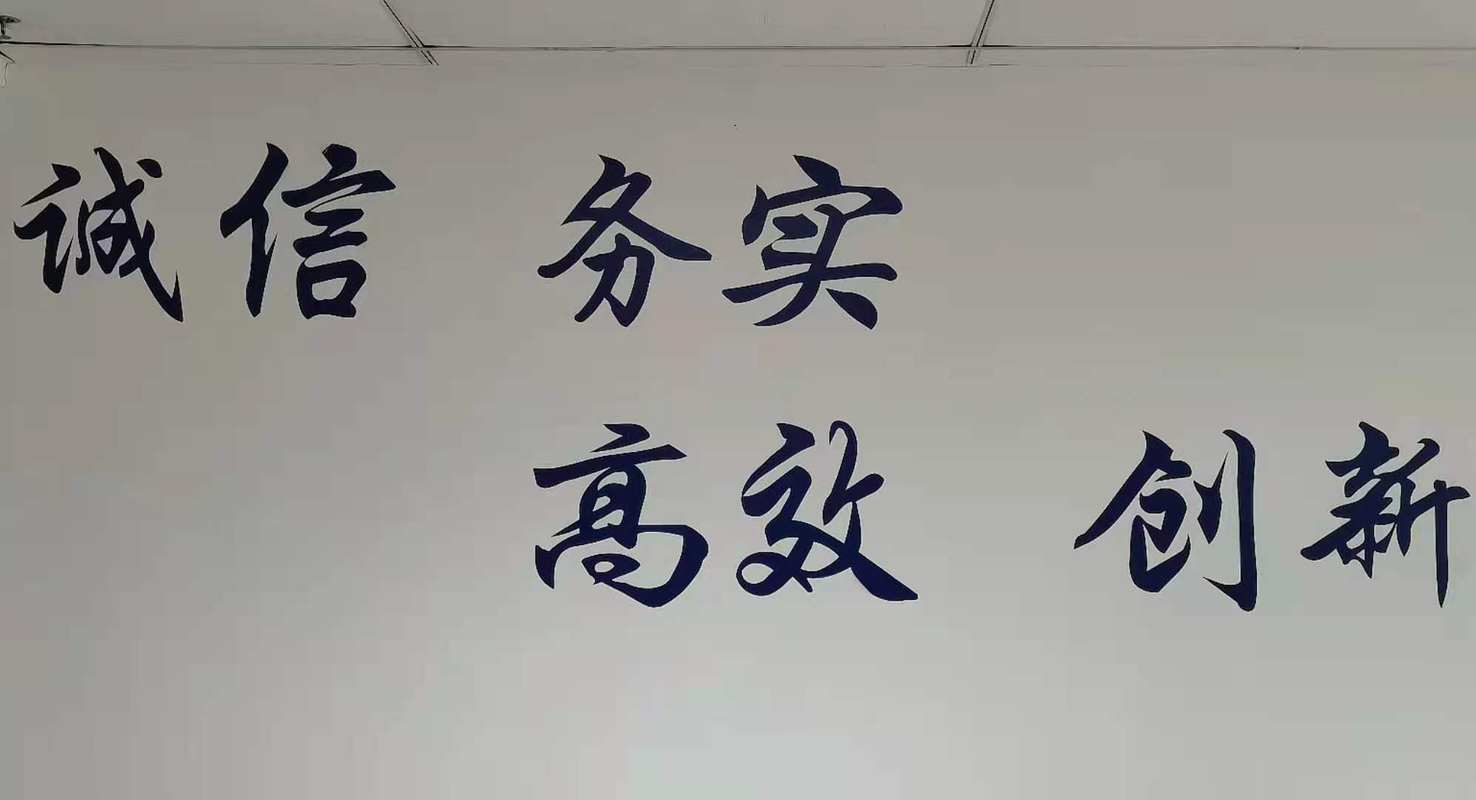 诚信 务实
高效 创新